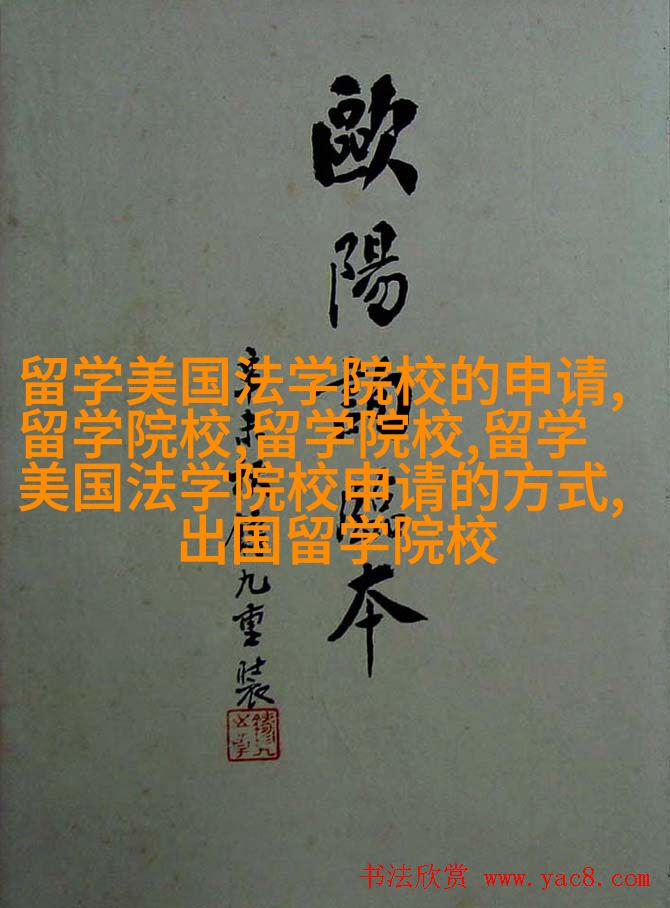 留学美国法学院校的申请,
留学院校,留学院校,留学
美国法学院校申请的方式,
出国留学院校
歐陽詢臨本
辛未九重裝
书法欣赏 www.yac8.com